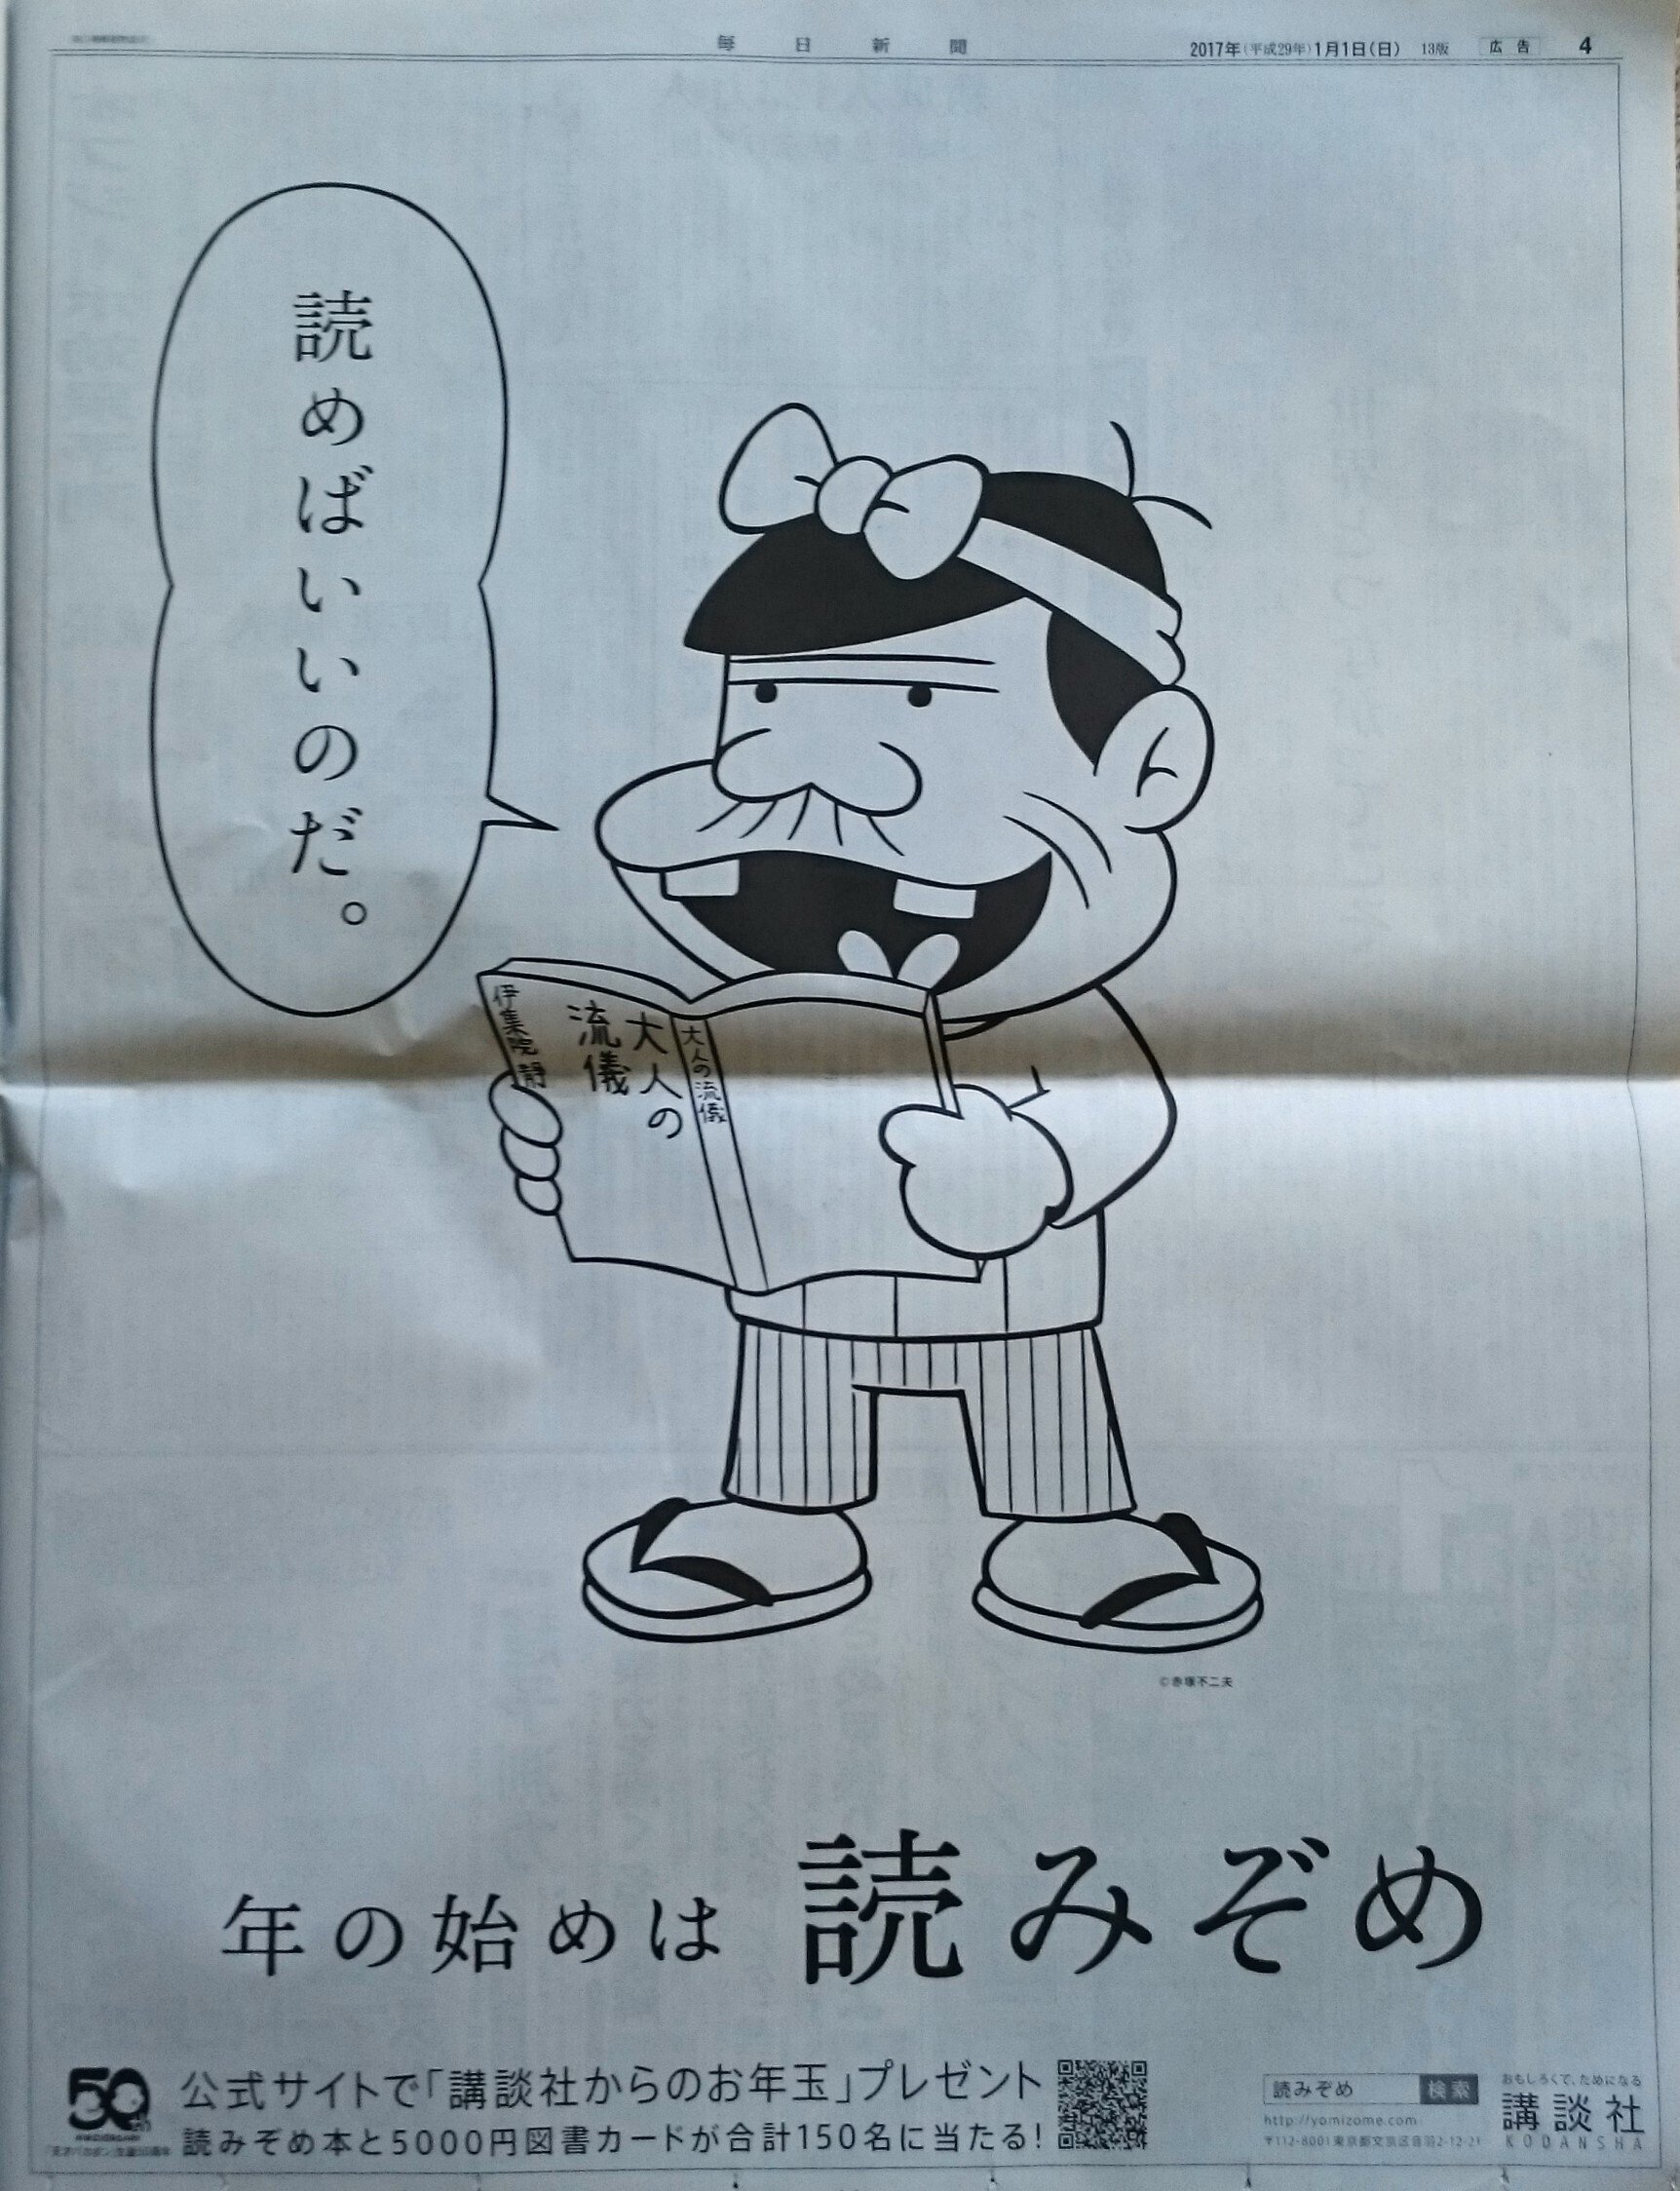 毎日新聞
2017年(平成29年)1月1日(日) 13版 広告 4
読めばいいのだ。
伊集院 靜
大人の
流儀
大人の流儀
©赤塚不二夫
年の始めは 読みぞめ
50th
公式サイトで「講談社からのお年玉」プレゼント
読みぞめ本と5000円図書カードが合計150名に当たる!
読みぞめ 検索
http://yomizome.com
〒112-8001 東京都文京区音羽2-12-21
おもしろくて、ためになる
講談社
KODANSHA